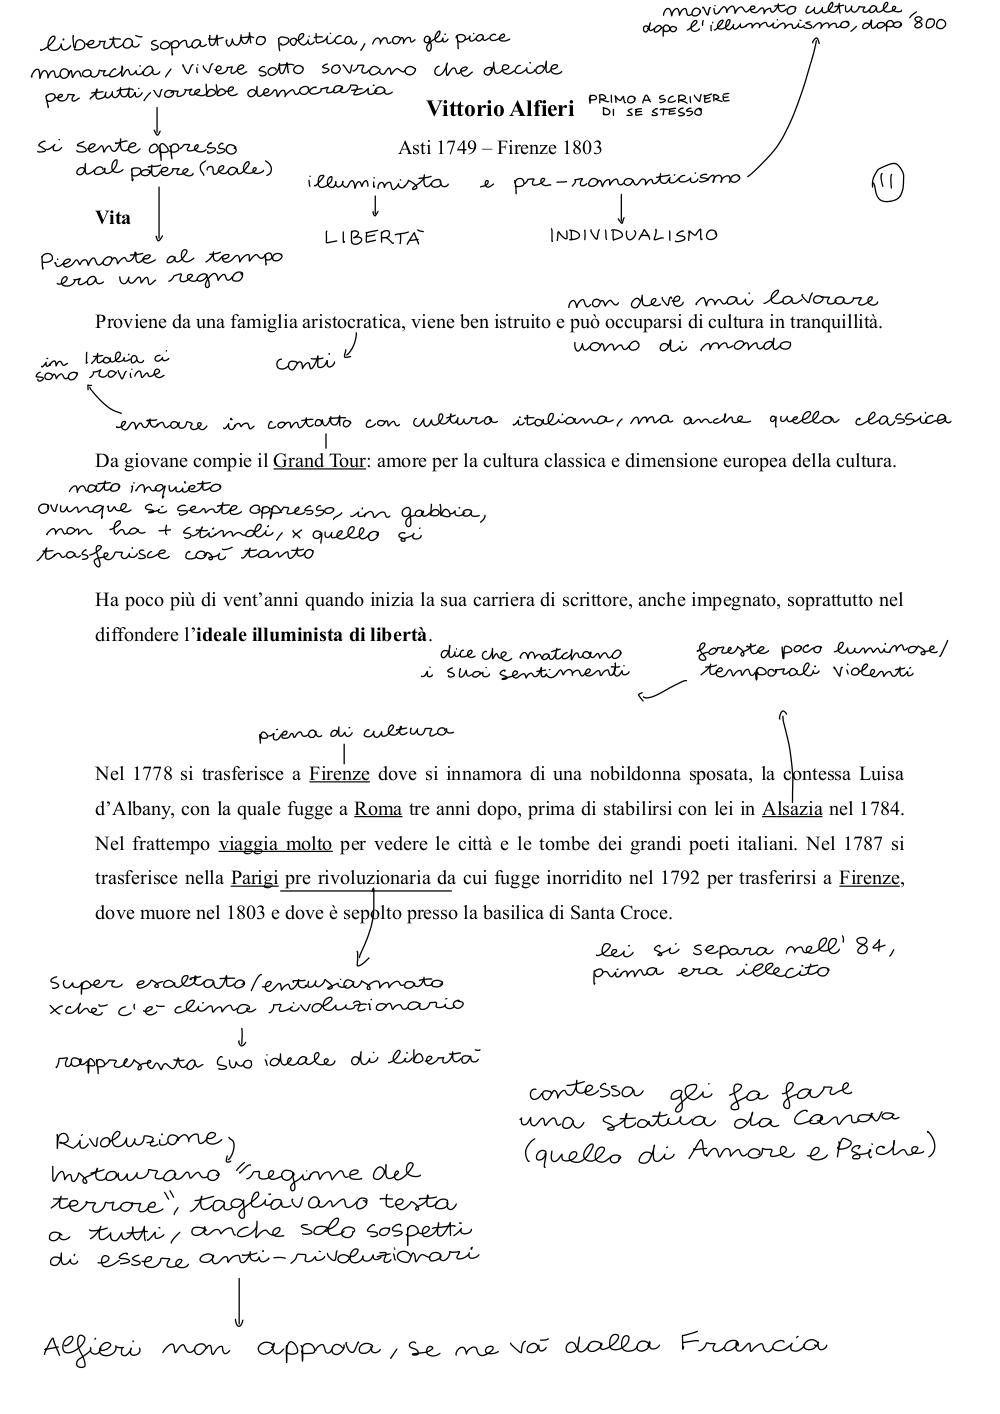 movimento culturale,
dopo l'illuminismo, dopo '800
libertà soprattutto politica, non gli piace
monarchia, vivere sotto sovrano che decide
per tutti, vorrebbe democrazia
Vittorio Alfieri PRIMO A SCRIVERE
DI SE STESSO
si sente oppresso
dal potere (reale)
Asti 1749 – Firenze 1803
illuminista e pre-romanticismo
11
Vita
LIBERTÀ
INDIVIDUALISMO
Piemonte al tempo
era un regno
non deve mai lavorare
Proviene da una famiglia aristocratica, viene ben istruito e può occuparsi di cultura in tranquillità.
uomo di mondo
conti
in Italia ci
sono rovine
entrare in contatto con cultura italiana, ma anche quella classica
Da giovane compie il Grand Tour: amore per la cultura classica e dimensione europea della cultura.
nato inquieto
ovunque si sente oppresso, in gabbia,
non ha + stimoli, x quello si
trasferisce così tanto
Ha poco più di vent'anni quando inizia la sua carriera di scrittore, anche impegnato, soprattutto nel
diffondere l'ideale illuminista di libertà.
dice che matchano
i suoi sentimenti
foreste poco luminose/
temporali violenti
piena di cultura
Nel 1778 si trasferisce a Firenze dove si innamora di una nobildonna sposata, la contessa Luisa
d'Albany, con la quale fugge a Roma tre anni dopo, prima di stabilirsi con lei in Alsazia nel 1784.
Nel frattempo viaggia molto per vedere le città e le tombe dei grandi poeti italiani. Nel 1787 si
trasferisce nella Parigi pre rivoluzionaria da cui fugge inorridito nel 1792 per trasferirsi a Firenze,
dove muore nel 1803 e dove è sepolto presso la basilica di Santa Croce.
lei si separa nell' 84,
prima era illecito
super esaltato/entusiasmato
xchè c'è clima rivoluzionario
rappresenta suo ideale di libertà
contessa gli fa fare
una statua da Canova
(quello di Amore e Psiche)
Rivoluzione,
Instaurano "regime del
terrore", tagliavano testa
a tutti, anche solo sospetti
di essere anti-rivoluzionari
Alfieri non approva, se ne và dalla Francia